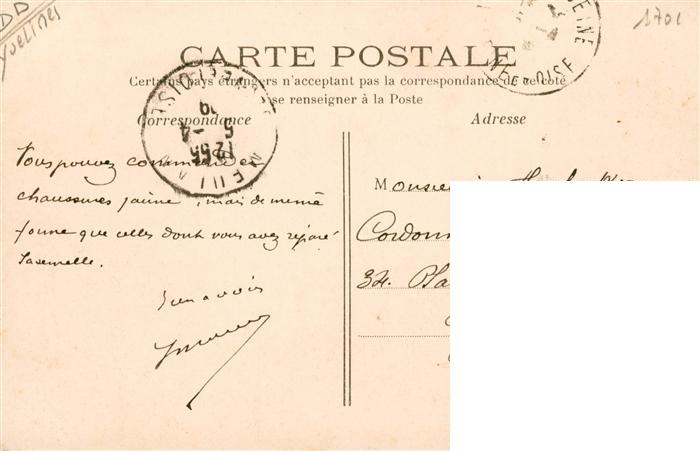 DD
Yvelines
1701
CARTE POSTALE
Certains pays étrangers n'acceptant pas la correspondance de ce côté
se renseigner à la Poste
Correspondance
Adresse
12 55
5 -4
09
SEINE
OISE
Vous pouvez commencer
chaussures jaune, mais de meme
forme que celles dont vous avez réparé
la semelle.
Monsieur
Cordonn
34. Pla